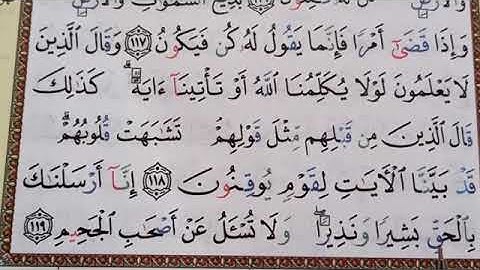 وَٱلۡأَرۡضِ ١١٦ بَدِيعُ ٱلسَّمَٰوَٰتِ وَٱلۡأَرۡضِۖ
وَإِذَا قَضَىٰٓ أَمۡرٗا فَإِنَّمَا يَقُولُ لَهُۥ كُن فَيَكُونُ ١١٧ وَقَالَ ٱلَّذِينَ
لَا يَعۡلَمُونَ لَوۡلَا يُكَلِّمُنَا ٱللَّهُ أَوۡ تَأۡتِينَآ ءَايَةٞۗ كَذَٰلِكَ
قَالَ ٱلَّذِينَ مِن قَبۡلِهِم مِّثۡلَ قَوۡلِهِمۡۘ تَشَٰبَهَتۡ قُلُوبُهُمۡۗ
قَدۡ بَيَّنَّا ٱلۡأٓيَٰتِ لِقَوۡمٖ يُوقِنُونَ ١١٨ إِنَّآ أَرۡسَلۡنَٰكَ
بِٱلۡحَقِّ بَشِيرٗا وَنَذِيرٗاۖ وَلَا تُسۡـَٔلُ عَنۡ أَصۡحَٰبِ ٱلۡجَحِيمِ ١١٩